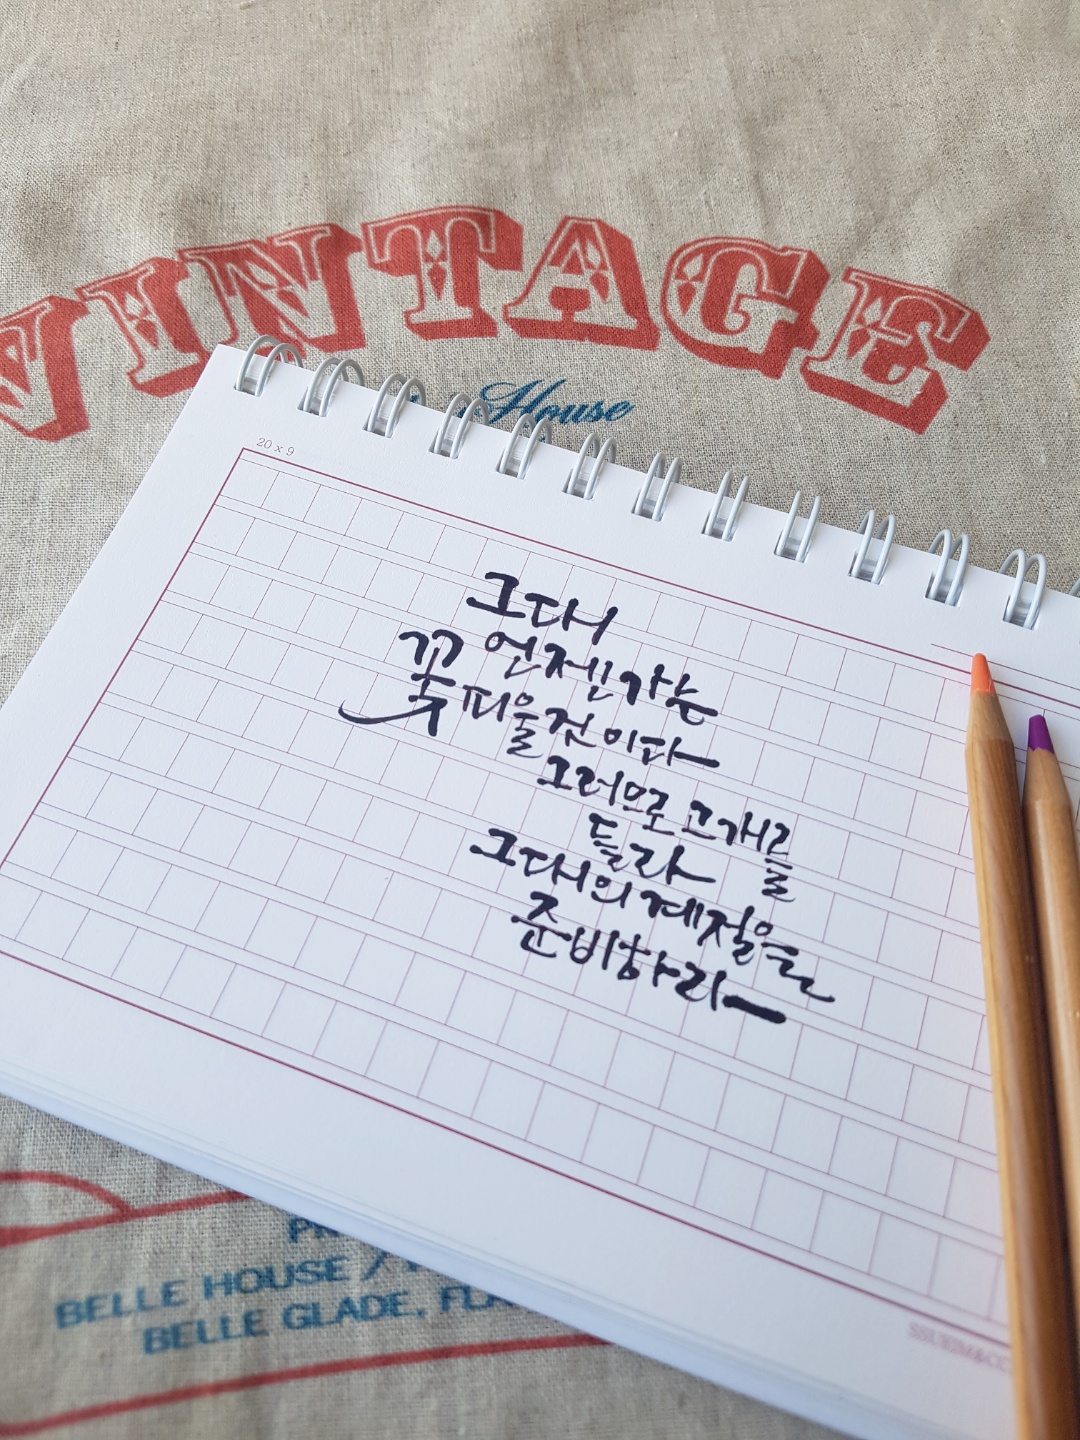 VINTAGE
House
20 x 9
그대
언젠가는
꽃피울것이다
그러므로 고개를
들라
그대의 계절을
준비하라
BELLE HOUSE /
BELLE GLADE,